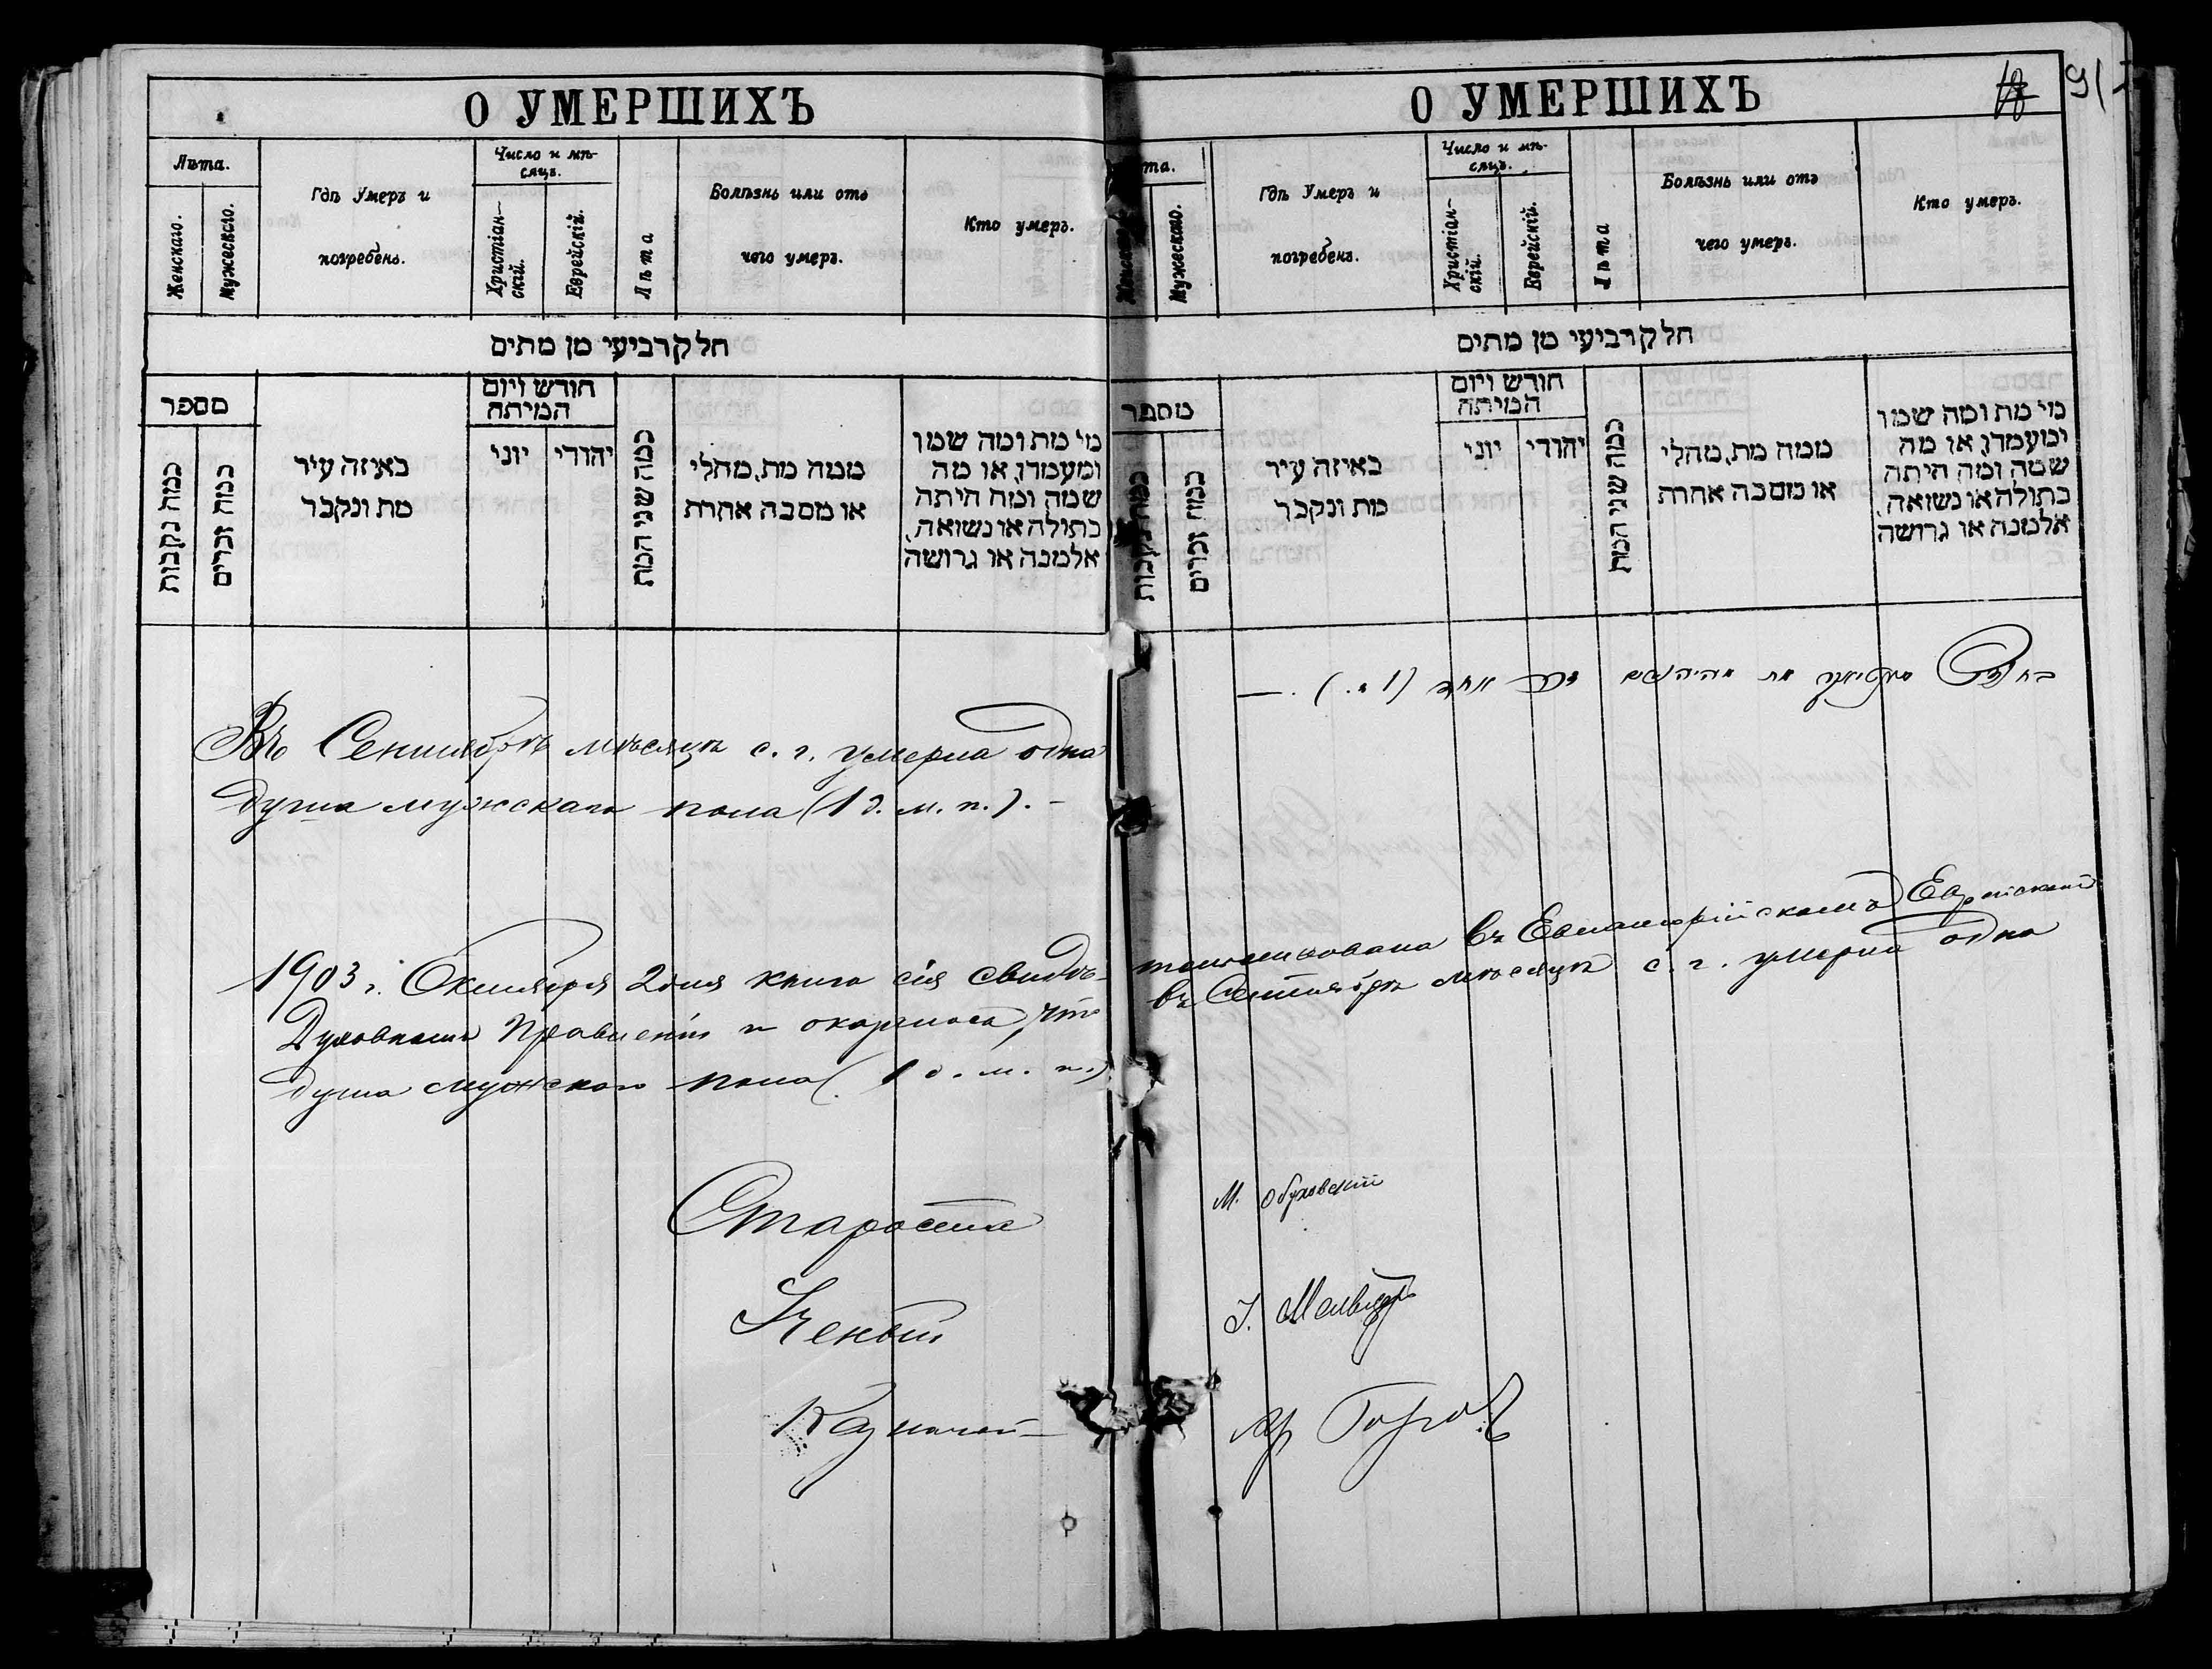 О УМЕРШИХЪ
Лѣта.
Женскаго.
Мужескаго.
Гдѣ Умеръ и
погребенъ.
Число и мѣ-
сяцъ.
Христіан-
скій.
Еврейскій.
Лѣта
Болѣзнь или отъ
чего умеръ.
Кто умеръ.
חלק רביעי מן מתים
מספר
כמה נקבות
כמה זכרים
באיזה עיר
מת ונקבר
חודש ויום
המיתה
יוני
יהודי
כמה שני המת
ממה מת, מחלי
או מסבה אחרת
מי מת ומה שמו
ומעמדו, או מה
שמה ומה היתה
בתולה או נשואה,
אלמנה או גרושה
Въ Сентябрѣ мѣсяцѣ с. г. умерла одна
душа мужскаго пола (1 д. м. п.). –
О УМЕРШИХЪ
91
та.
Женскаго.
Мужескаго.
Гдѣ Умеръ и
погребенъ.
Число и мѣ-
сяцъ.
Христіан-
скій.
Еврейскій.
Лѣта
Болѣзнь или отъ
чего умеръ.
Кто умеръ.
חלק רביעי מן מתים
מספר
כמה נקבות
כמה זכרים
באיזה עיר
מת ונקבר
חודש ויום
המיתה
יוני
יהודי
כמה שני המת
ממה מת, מחלי
או מסבה אחרת
מי מת ומה שמו
ומעמדו, או מה
שמה ומה היתה
בתולה או נשואה,
אלמנה או גרושה
זכר אחד (1 ז.). —
1903 г. Октября 2 дня книга сія свидѣ- тельствована въ Евпаторійскомъ Еврейскомъ
Духовномъ Правленіи и оказалось, что въ Сентябрѣ мѣсяцѣ с. г. умерла одна
душа мужскаго пола (1 д. м. п.)
Староста М. Обуховскій
Ученый І.
Казначей